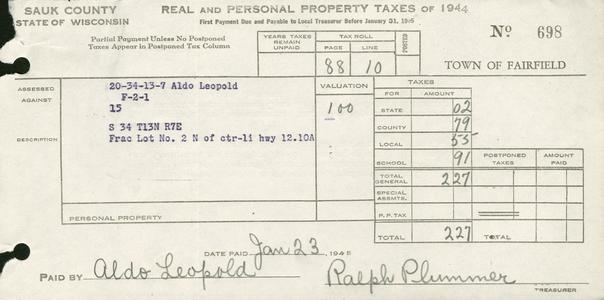 SAUK COUNTY REAL AND PERSONAL PROPERTY TAXES OF 1944
STATE OF WISCONSIN First Payment Due and Payable to Local Treasurer Before January 31, 1945
No 698
Partial Payment Unless No Postponed
Taxes Appear in Postponed Tax Column
YEARS TAXES REMAIN UNPAID TAX ROLL POSTED
PAGE LINE
88 10
TOWN OF FAIRFIELD
ASSESSED AGAINST
20-34-13-7 Aldo Leopold
F-2-1
15
DESCRIPTION
S 34 T13N R7E
Frac Lot No. 2 N of ctr-li hwy 12.10A
PERSONAL PROPERTY
VALUATION
100
TAXES
FOR AMOUNT
STATE 02
COUNTY 79
LOCAL 55
SCHOOL 91 POSTPONED TAXES AMOUNT PAID
TOTAL GENERAL 227
SPECIAL ASSMTS.
P.P. TAX
TOTAL 227 TOTAL
DATE PAID Jan 23 1945
PAID BY Aldo Leopold Ralph Plummer
TREASURER